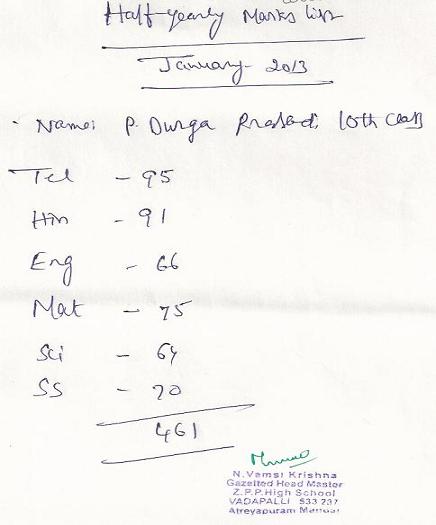 Half-yearly Marks list
January - 2013
Name: P. Durga Prasad, 10th class
Tel - 95
Hin - 91
Eng - 66
Mat - 75
Sci - 64
SS - 70
461
N.Vamsi Krishna
Gazetted Head Master
Z.P.P.High School
VADAPALLI 533 237
Atreyapuram Mandal